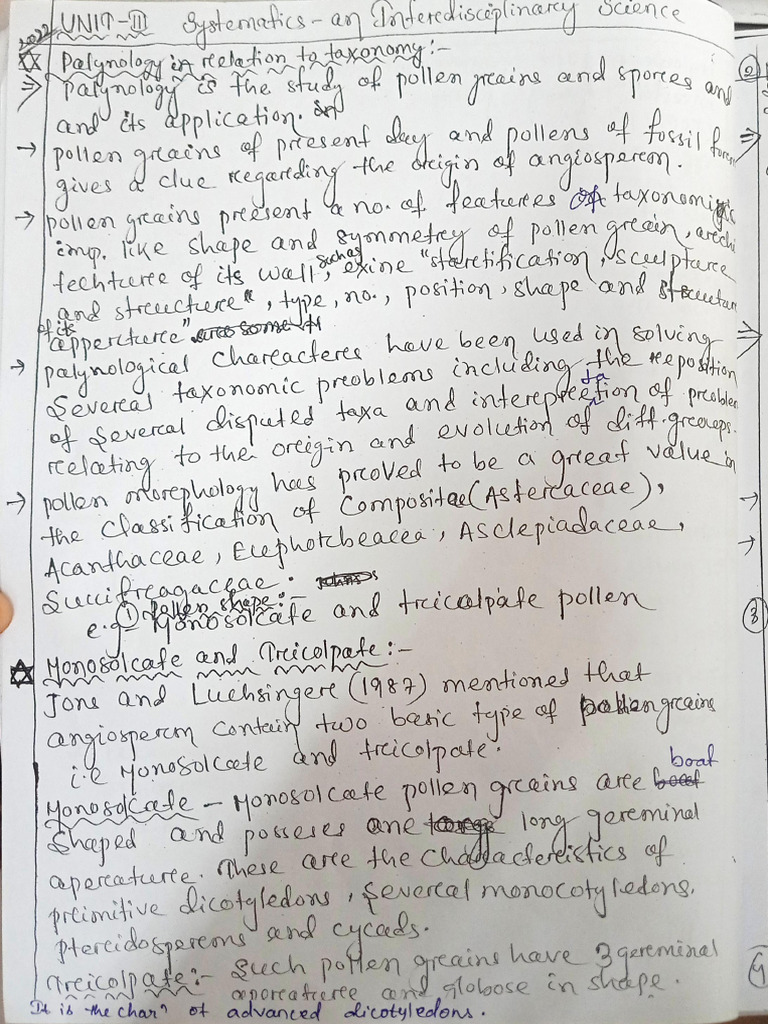 2022 UNIT-III Systematics - an Interedisceiplinarcy Science
Palynology in reelation to taxonomy:-
⇒ Palynology is the study of pollen greains and sporces and
and its application.
→ pollen greains of present day and pollens of fossil
gives a clue regareding the oreigin of angiosperem.
→ pollen greains present a no. of features of taxonomic
imp. like shape and symmetrey of pollen greain, archi
techturee of its wall, such as exine "stareitification, sculpturee
and streucturee", type, no., position, shape and
of its apperturee"
→ palynological chareacteres have been used in solving
Severeal taxonomic preoblems including the reposition
of severeal disputed taxa and interepreetation of preoblem
reelating to the oreigin and evolution of diff. greoups.
→ pollen morephology has preoved to be a greeat value in
the classification of Compositae (Astereaceae),
Acanthaceae, Euphorcbeacea, Asclepiadaceae,
Sucifreagaceae.
e.g - ① Pollen shape:- Monosolcate and treicolpate pollen
Monosolcate and Treicolpate:-
Jone and Luchsingere (1987) mentioned that
angiosperem contain two basic type of pollen greains
i.e Monosolcate and treicolpate.
Monosolcate - Monosolcate pollen greains aree boat
shaped and posseses one long gereminal
apereaturee. These aree the chareactereistics of
preimitive dicotyledons, severeal monocotyledons,
pterеidosperems and cycads.
Treicolpate:- Such pollen greains have 3 gereminal
aporeaturee and globose in shape.
It is the charⁿ of advanced dicotyledons.